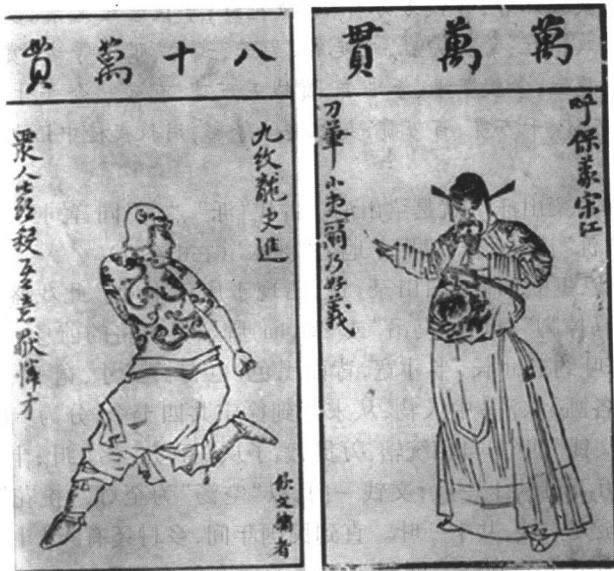 萬萬貫
呼保義宋江
刀筆小吏爾乃好義
八十萬貫
九紋龍史進
眾人皆欲殺吾意獨憐才